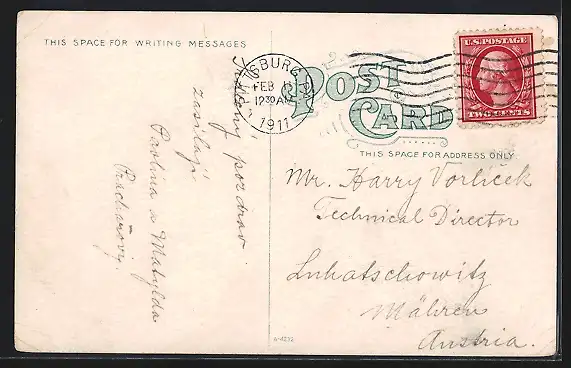 THIS SPACE FOR WRITING MESSAGES
POST CARD
THIS SPACE FOR ADDRESS ONLY
SBURG
FEB
1230 AM
1911
U.S. POSTAGE
TWO CENTS
Srdečný pozdrav
zasílají
a Matylda
Mr. Harry Vorlicek
Technical Director
Luhatschowitz
Mähren
Austria.
A-4232